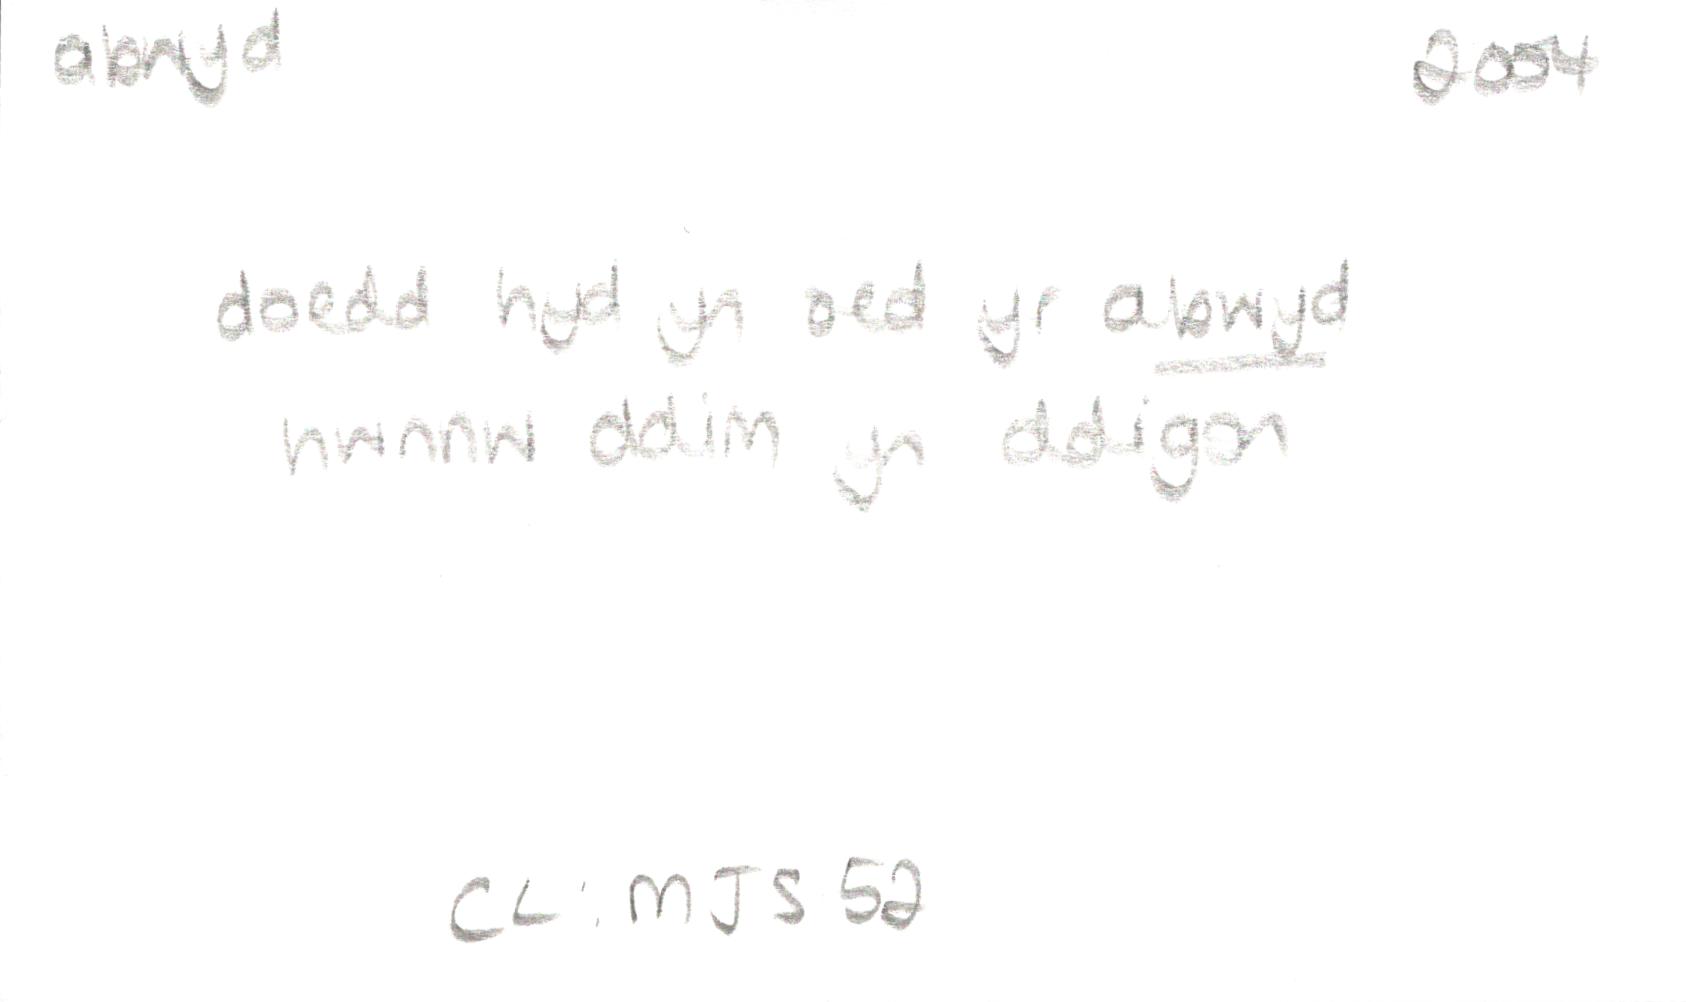 abwyd 2004
doedd hyd yn oed yr abwyd
hwnnw ddim yn ddigon
CL: MJS 52